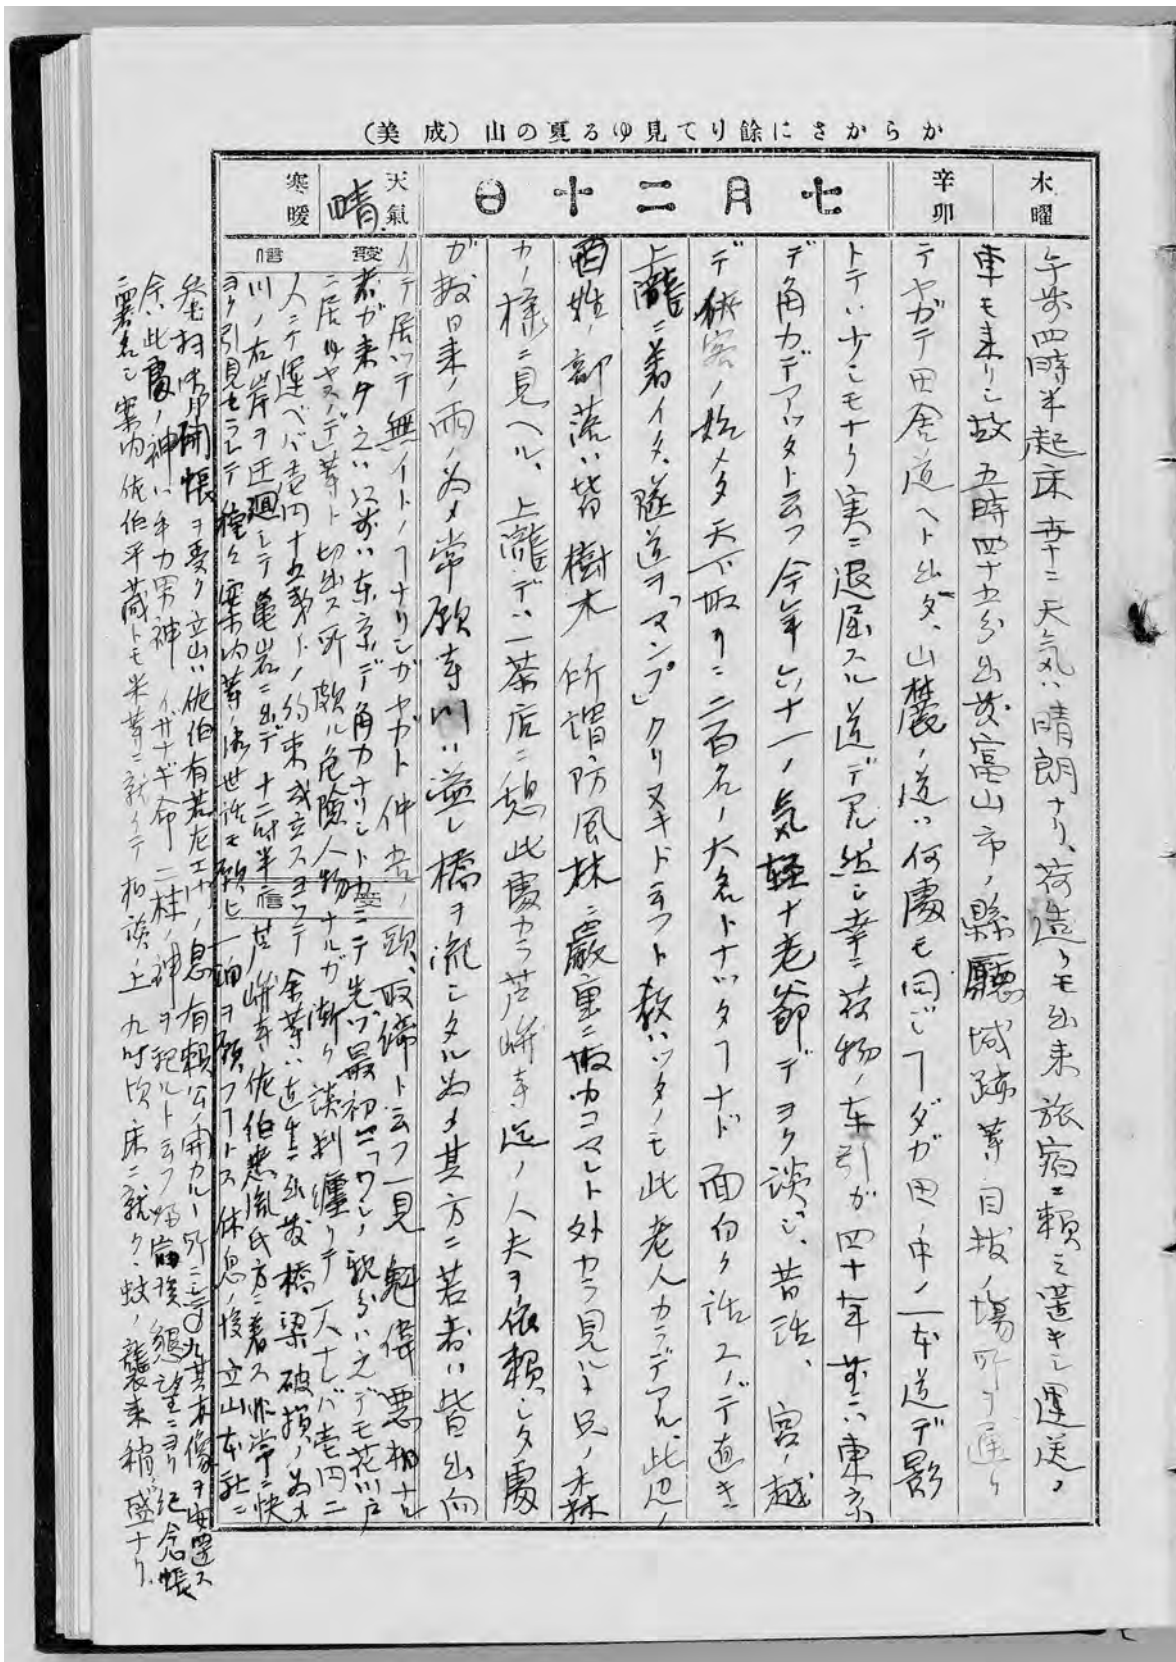 からかさに餘りて見ゆる夏の山(成美)
木曜
辛卯
七月二十日
天氣
晴
寒暖
午前四時半起床 幸ニ天気ハ晴朗ナリ、荷造リモ出来 旅宿ニ頼ミ置キシ運送ノ
車モ来リシ故 五時四十五分出発富山市ノ縣廳城跡等目抜ノ場所ヲ通リ
テヤガテ田舎道ヘト出タ、山麓ノ道ハ何處モ同ジヿダガ田ノ中ノ一本道デ影
トテハ少シモナク実ニ退屈スル道デアル然シ幸ニ荷物ノ車引ガ四十年前ニハ東京
デ角力デアッタト云フ 今年六十一ノ気軽ナ老爺デヨク談ジ、昔話、宮ノ越
デ侠客ノ始メタ天下取リニ二百名ノ大名トナッタヿナド面白ク話スノデ直キニ
上瀧ニ着イタ、隧道ヲ「マンプ」クリヌキト云フト教ハッタノモ此老人カラデアル、此辺ノ
百姓ノ部落ハ皆樹木 所謂防風林ニ嚴重ニ取カコマレト外カラ見ルト只ノ森
カノ様ニ見ヘル、上瀧デハ一茶店ニ憩此處カラ芦峅寺迄ノ人夫ヲ依頼シタ處
ガ数日来ノ雨ノ為メ常願寺川ハ溢レ橋ヲ流シタル為メ其方ニ若者ハ皆出向
イテ居ッテ無イトノヿナリシガヤガト仲吉ノ頭、取締ト云フ一見魁偉悪相ナル
者ガ来タ之ハ以前ハ東京デ角力ナリシトカニテ先ヅ最初ニ「ワシノ親分ハ之デモ花川戸
ニ居リヤスノデ」等ト切出ス所頗ル危険人物ナルガ漸ク談判纏リテ一人ナレバ壱円二
人ニテ運ベバ壱円十五銭トノ約束成立スヨッテ余等ハ直チニ出発橋梁破損ノ為メ
川ノ右岸ヲ迂廻シテ亀岩ニ出デ 十二時半 芦峅寺佐伯 氏方ニ着ス非常ニ快
ヨク引見セラレテ種々案内等ノ御世話モ頼ヒ一泊ヲ願フヿトス休息ノ後立山本社ニ
参拝 開帳ヲ受ク立山ハ佐伯有若左エ門ノ息有頼公ノ開カルヽ所ニシテ其木像ヲ安置ス
余ハ此處ノ神ハ手力男神 イザナギ命 二柱ノ神ヲ祀ルト云フ帰宿後懇望ニヨリ紀念帳
ニ署名シ案内佐伯平蔵トモ米等ニ就イテ相談ノ上 九時頃床ニ就ク、蚊ノ襲来稍盛ナリ、
發信
受信